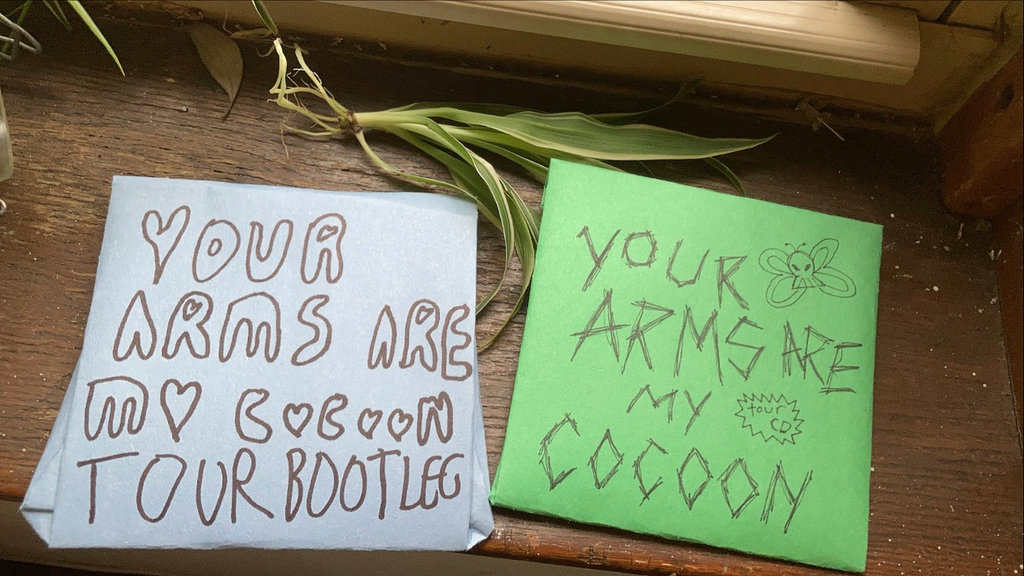 YOUR
ARMS ARE
MY COCOON
TOUR BOOTLEG
YOUR
ARMS ARE
MY
tour
CD
COCOON